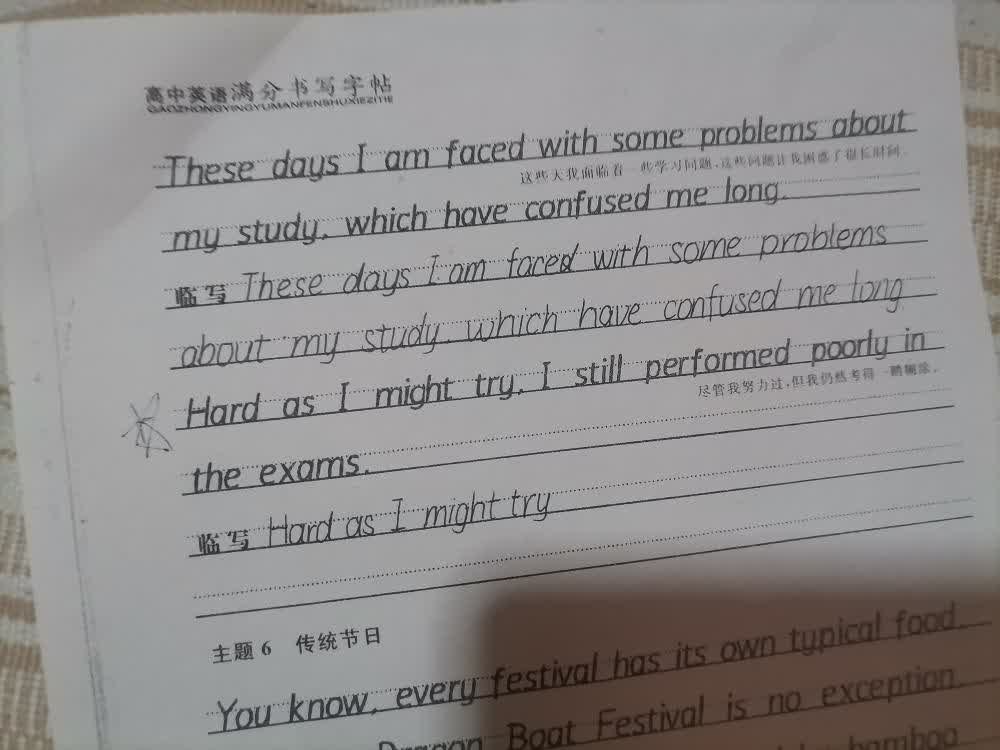 高中英语满分书写字帖
GAOZHONGYINGYUMANFENSHUXIEZITIE
These days I am faced with some problems about
这些天我面临着一些学习问题,这些问题让我困惑了很长时间。
my study, which have confused me long.
临写 These days I am faced with some problems
about my study, which have confused me long
Hard as I might try, I still performed poorly in
尽管我努力过,但我仍然考得一塌糊涂。
the exams.
临写 Hard as I might try
主题 6 传统节日
You know, every festival has its own typical food.
Dragon Boat Festival is no exception.
bamboo